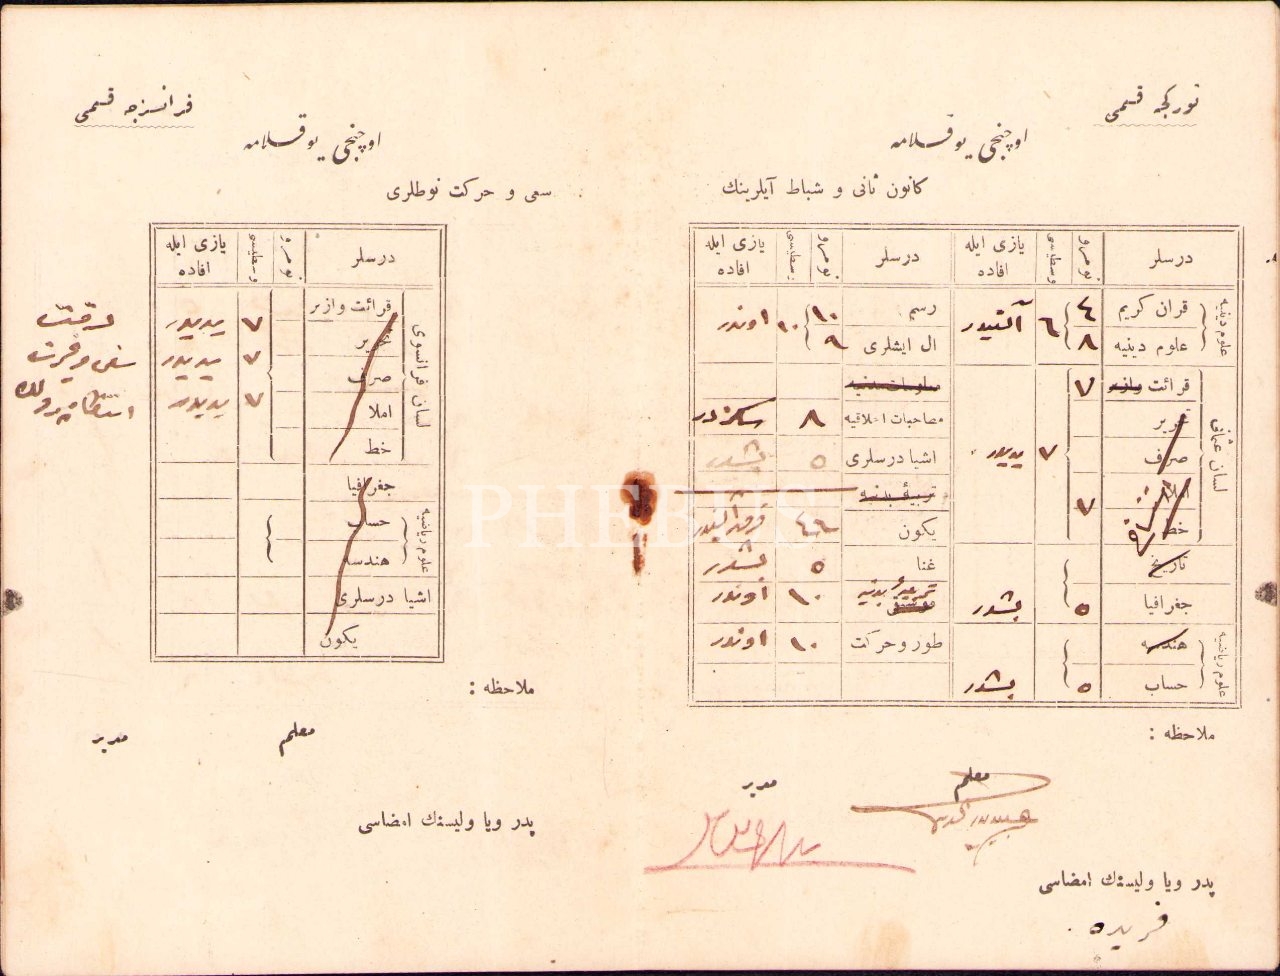 تورکجه قسمی
اوچنجی یوقلامه
کانون ثانی و شباط آیلرینك
درسلر
نومرو
وسطیسی
یازی ایله افاده
درسلر
نومرو
وسطیسی
یازی ایله افاده
علوم دینیه
قرآن کریم ٤
٦ آلتیدر
علوم دینیه ٨
لسان عثمانی
قرائت وازبر ٧
تحریر
صرف
٧ یدیدر
املا
خط
٧
تاریخ
جغرافیا ٥ بشدر
علوم ریاضیه
هندسه
حساب ٥ بشدر
رسم ١٠
١٠ اوندر
ال ایشلری ٩
معلومات مدنیه
مصاحبات اخلاقیه ٨ سکزدر
اشیا درسلری ٥ بشدر
تربیهٔ بدنیه
یکون ٤٦
غنا ٥ بشدر
موسیقی
١٠ اوندر
طور و حرکت ١٠ اوندر
ملاحظه :
معلم
مدیر
پدر ویا ولیسنك امضاسی
فریده
فرانسزجه قسمی
اوچنجی یوقلامه
سعی و حرکت نوطلری
درسلر
نومرو
وسطیسی
یازی ایله افاده
لسان فرانسوی
قرائت وازبر
تحریر
صرف
املا
خط
٧ یدیدر
٧ یدیدر
٧ یدیدر
دقت
سعی و غیرت
جغرافیا
علوم ریاضیه
حساب
هندسه
اشیا درسلری
یکون
ملاحظه :
معلم
مدیر
پدر ویا ولیسنك امضاسی
PHEBUS